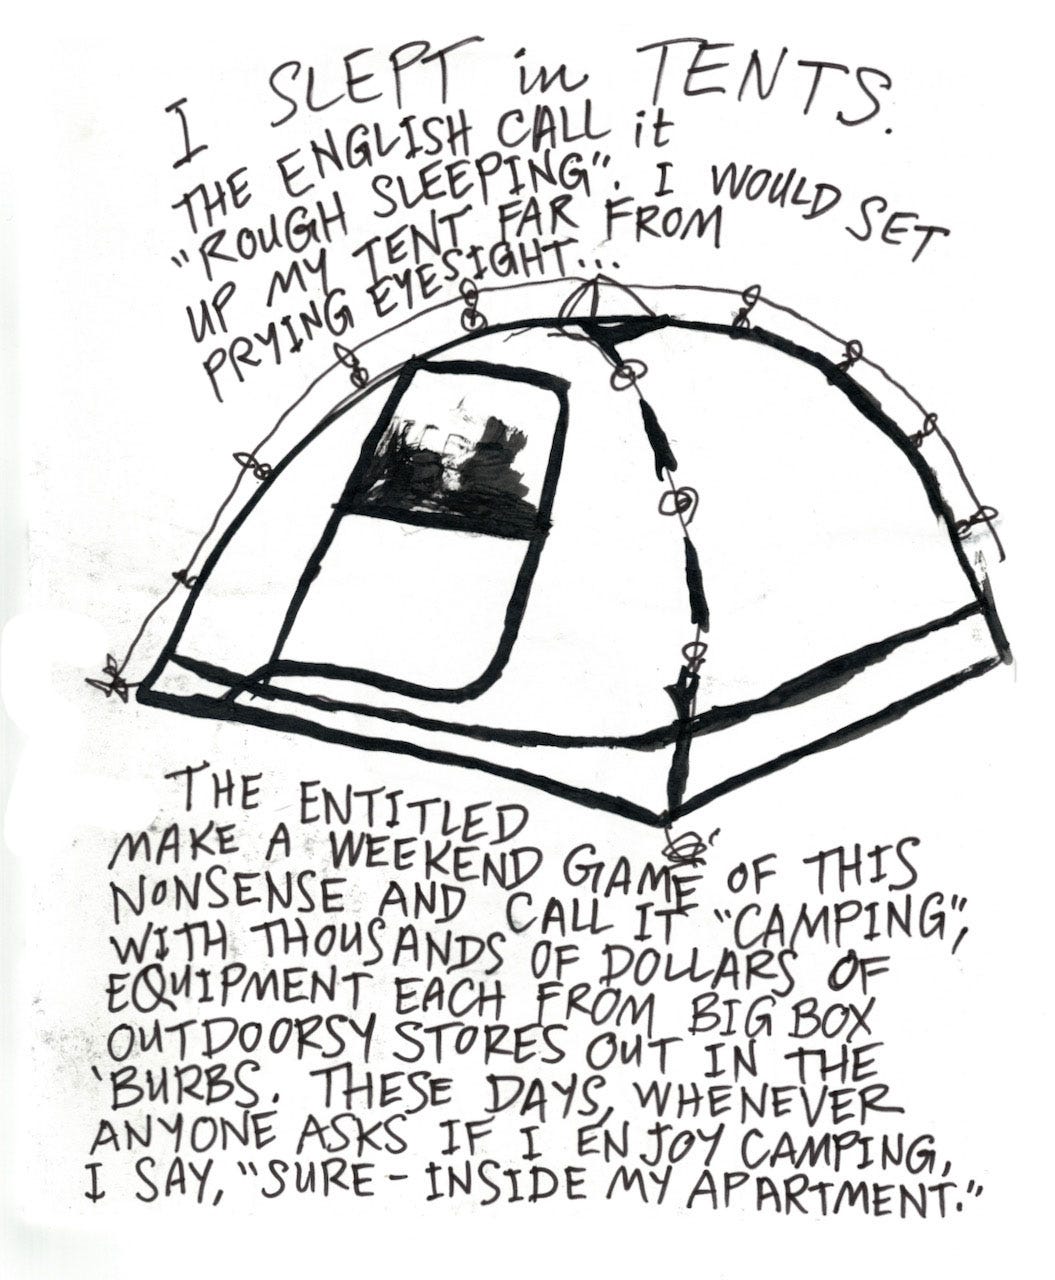 I SLEPT in TENTS.
THE ENGLISH CALL it
"ROUGH SLEEPING". I WOULD SET
UP MY TENT FAR FROM
PRYING EYESIGHT...
THE ENTITLED
MAKE A WEEKEND GAME OF THIS
NONSENSE AND CALL IT "CAMPING",
WITH THOUSANDS OF DOLLARS OF
EQUIPMENT EACH FROM BIG BOX
OUTDOORSY STORES OUT IN THE
'BURBS. THESE DAYS, WHENEVER
ANYONE ASKS IF I ENJOY CAMPING,
I SAY, "SURE - INSIDE MY APARTMENT."